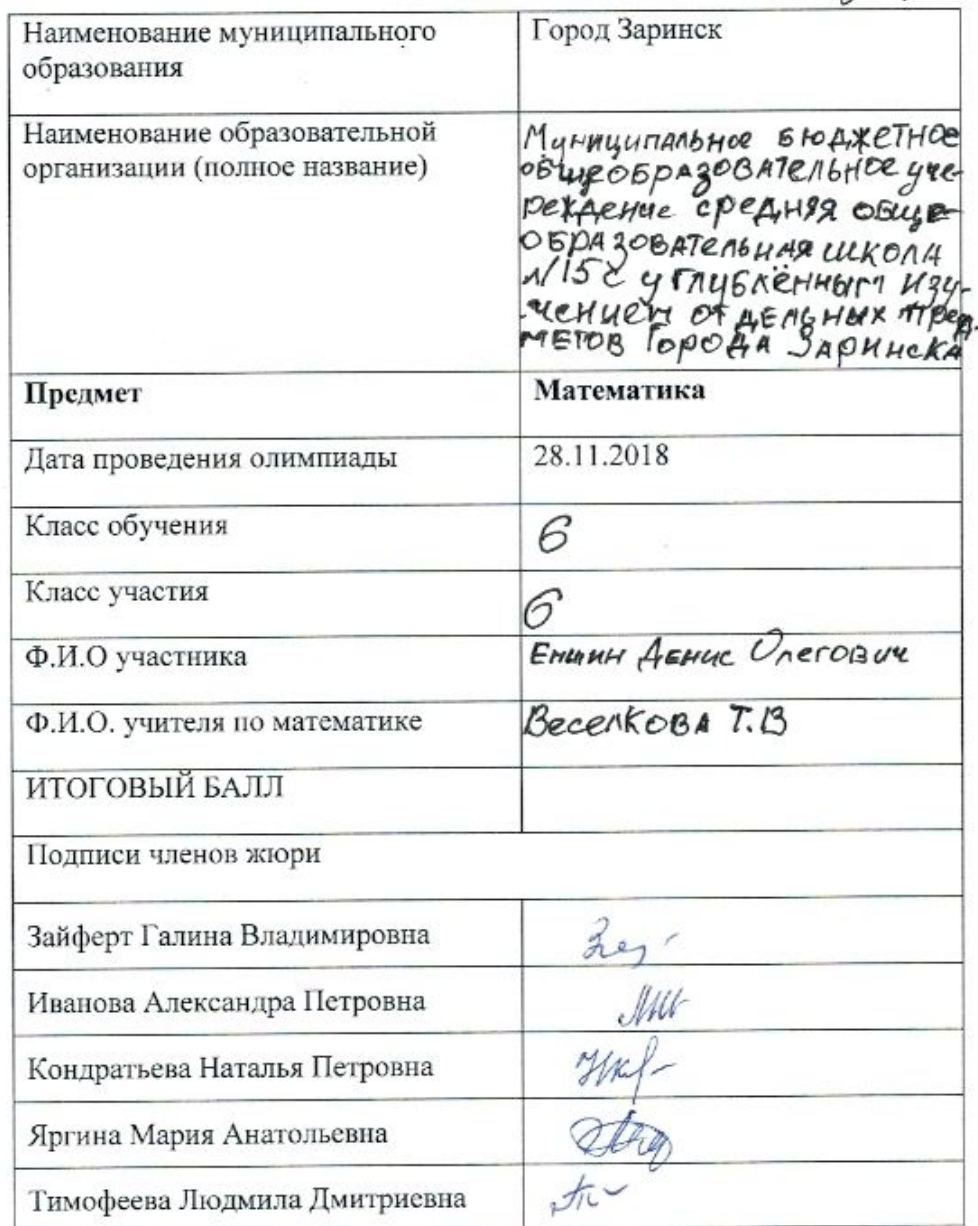 Наименование муниципального
образования
Город Заринск
Наименование образовательной
организации (полное название)
Муниципальное бюджетное
общеобразовательное уче-
реждение средняя обще
образовательная школа
№15 с углублённым изу-
чением отдельных пред-
метов города Заринска
Предмет
Математика
Дата проведения олимпиады
28.11.2018
Класс обучения
6
Класс участия
6
Ф.И.О участника
Еншин Денис Олегович
Ф.И.О. учителя по математике
Веселкова Т.В
ИТОГОВЫЙ БАЛЛ
Подписи членов жюри
Зайферт Галина Владимировна
Иванова Александра Петровна
Кондратьева Наталья Петровна
Яргина Мария Анатольевна
Тимофеева Людмила Дмитриевна